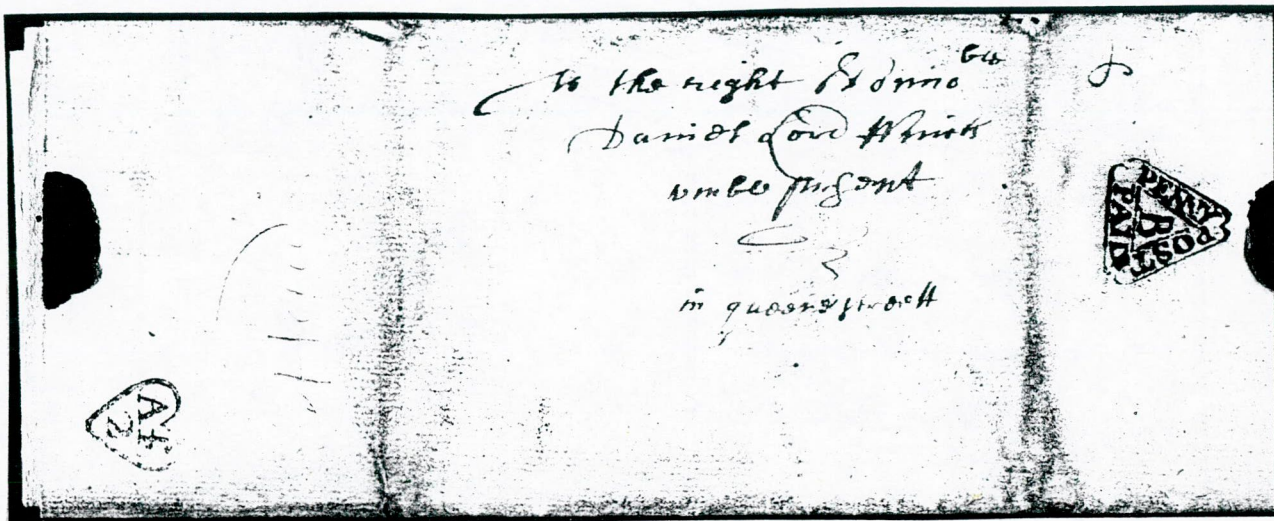 to the right Honno ble
Daniel Lord
humble present
in queene streett
PENNY
POST
PAID
B
Af
2